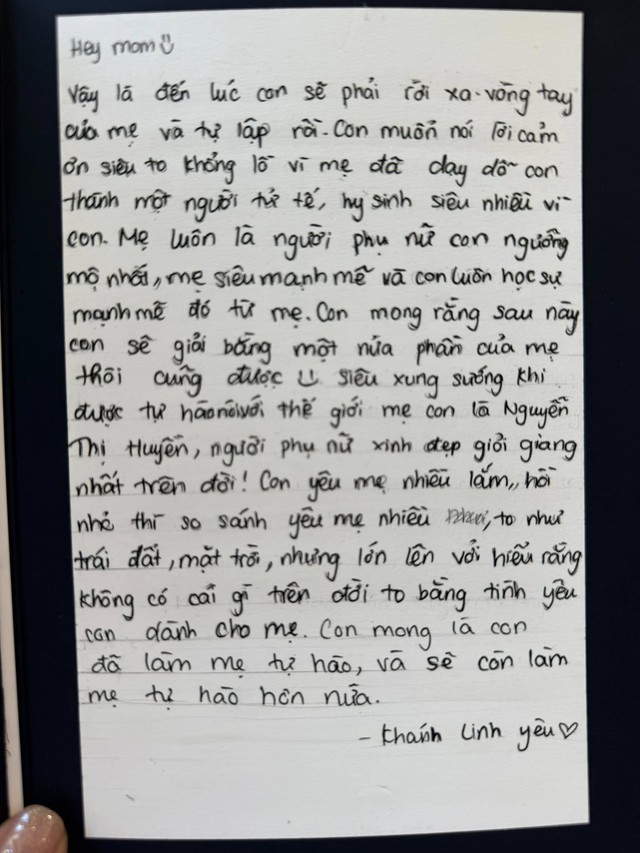 Hey mom
Vậy là đến lúc con sẽ phải rời xa vòng tay
của mẹ và tự lập rồi. Con muốn nói lời cảm
ơn siêu to khổng lồ vì mẹ đã dạy dỗ con
thành một người tử tế, hy sinh siêu nhiều vì
con. Mẹ luôn là người phụ nữ con ngưỡng
mộ nhất, mẹ siêu mạnh mẽ và con luôn học sự
mạnh mẽ đó từ mẹ. Con mong rằng sau này
con sẽ giỏi bằng một nửa phần của mẹ
thôi cũng được siêu xung sướng khi
được tự hào nói với thế giới mẹ con là Nguyễn
Thị Huyền, người phụ nữ xinh đẹp giỏi giang
nhất trên đời! Con yêu mẹ nhiều lắm, hồi
nhỏ thì so sánh yêu mẹ nhiều , to như
trái đất, mặt trời, nhưng lớn lên với hiểu rằng
không có cái gì trên đời to bằng tình yêu
con dành cho mẹ. Con mong là con
đã làm mẹ tự hào, và sẽ còn làm
mẹ tự hào hơn nữa.
- Khánh Linh yêu ♡